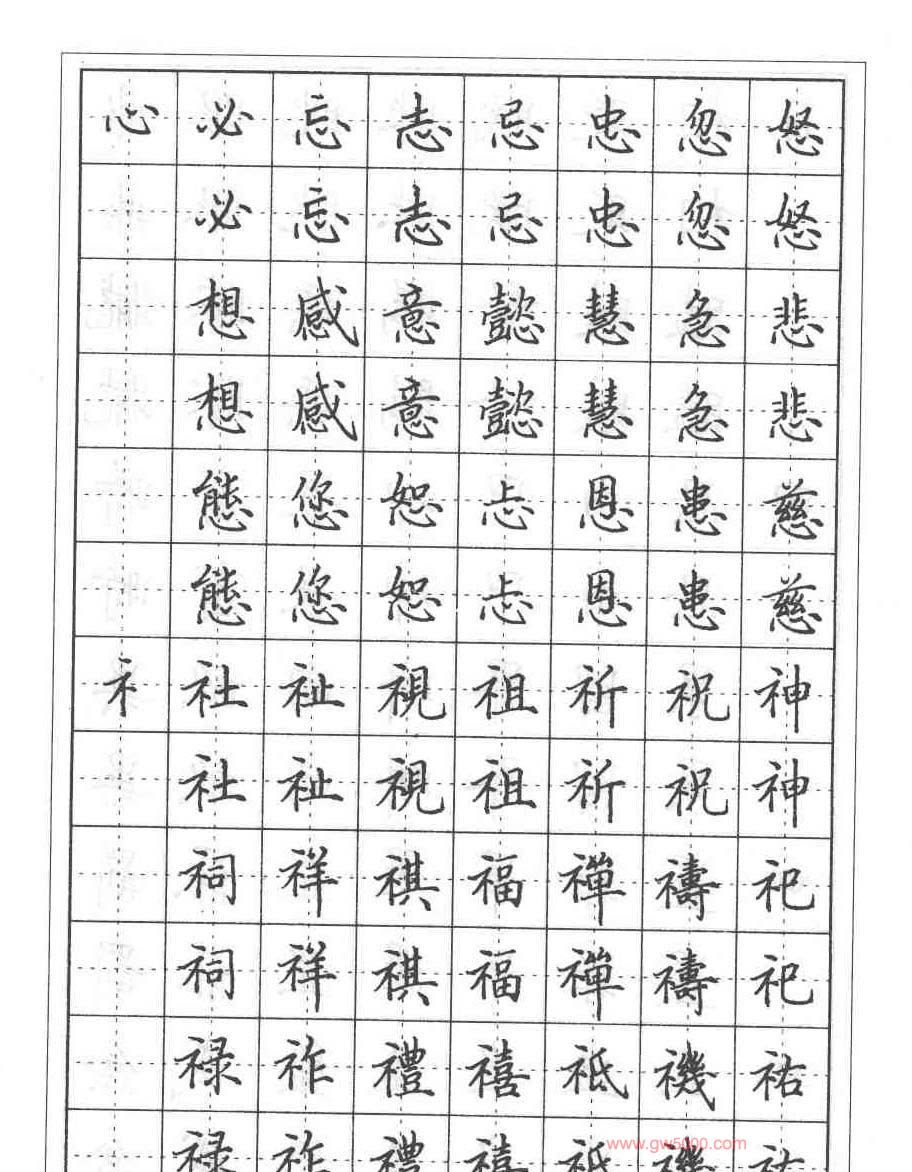 心 必 忘 志 忌 忠 忽 怒
必 忘 志 忌 忠 忽 怒
想 感 意 懿 慧 急 悲
想 感 意 懿 慧 急 悲
態 您 恕 忐 恩 患 慈
態 您 恕 忐 恩 患 慈
礻 社 祉 視 祖 祈 祝 神
社 祉 視 祖 祈 祝 神
祠 祥 祺 福 禪 禱 祀
祠 祥 祺 福 禪 禱 祀
禄 祚 禮 禧 祗 禨 祐
禄 祚 禮 禧 祗 禨 祐
www.gw5000.com